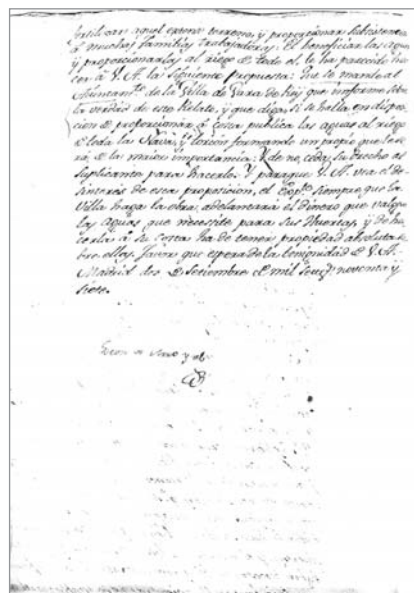 utilizar aquel exteno terreno, y proporcionar subsistencia
á muchas familias trabajadoras. El beneficiar las aguas
y proporcionarlas al riego de todo el, le ha parecido ha
cer á V. A. la siguiente propuesta: que se mande al
Ayuntamto. de la Villa de Yara de hoy que informe sobre
la verdad de este relato, y que diga si se halla en disposi
cion de proporcionar á costa publica las aguas al riego
de toda las y formando un propio que se
rá de la mayor importancia: y de no, ceda su derecho al
suplicante para hacerlo. Y para que V. A. vea el de-
sinteres de esta proposicion, el Expte. siempre que la
Villa haga la obra, adelantaria el dinero que valgan
las aguas que necesite para sus Huertas, y de ha-
cerla á su costa ha de tener propiedad absoluta so-
bre ellas. Favor que espera de la benignidad de V. A.
Madrid dos de Setiembre de mil setecs. noventa y
siete.